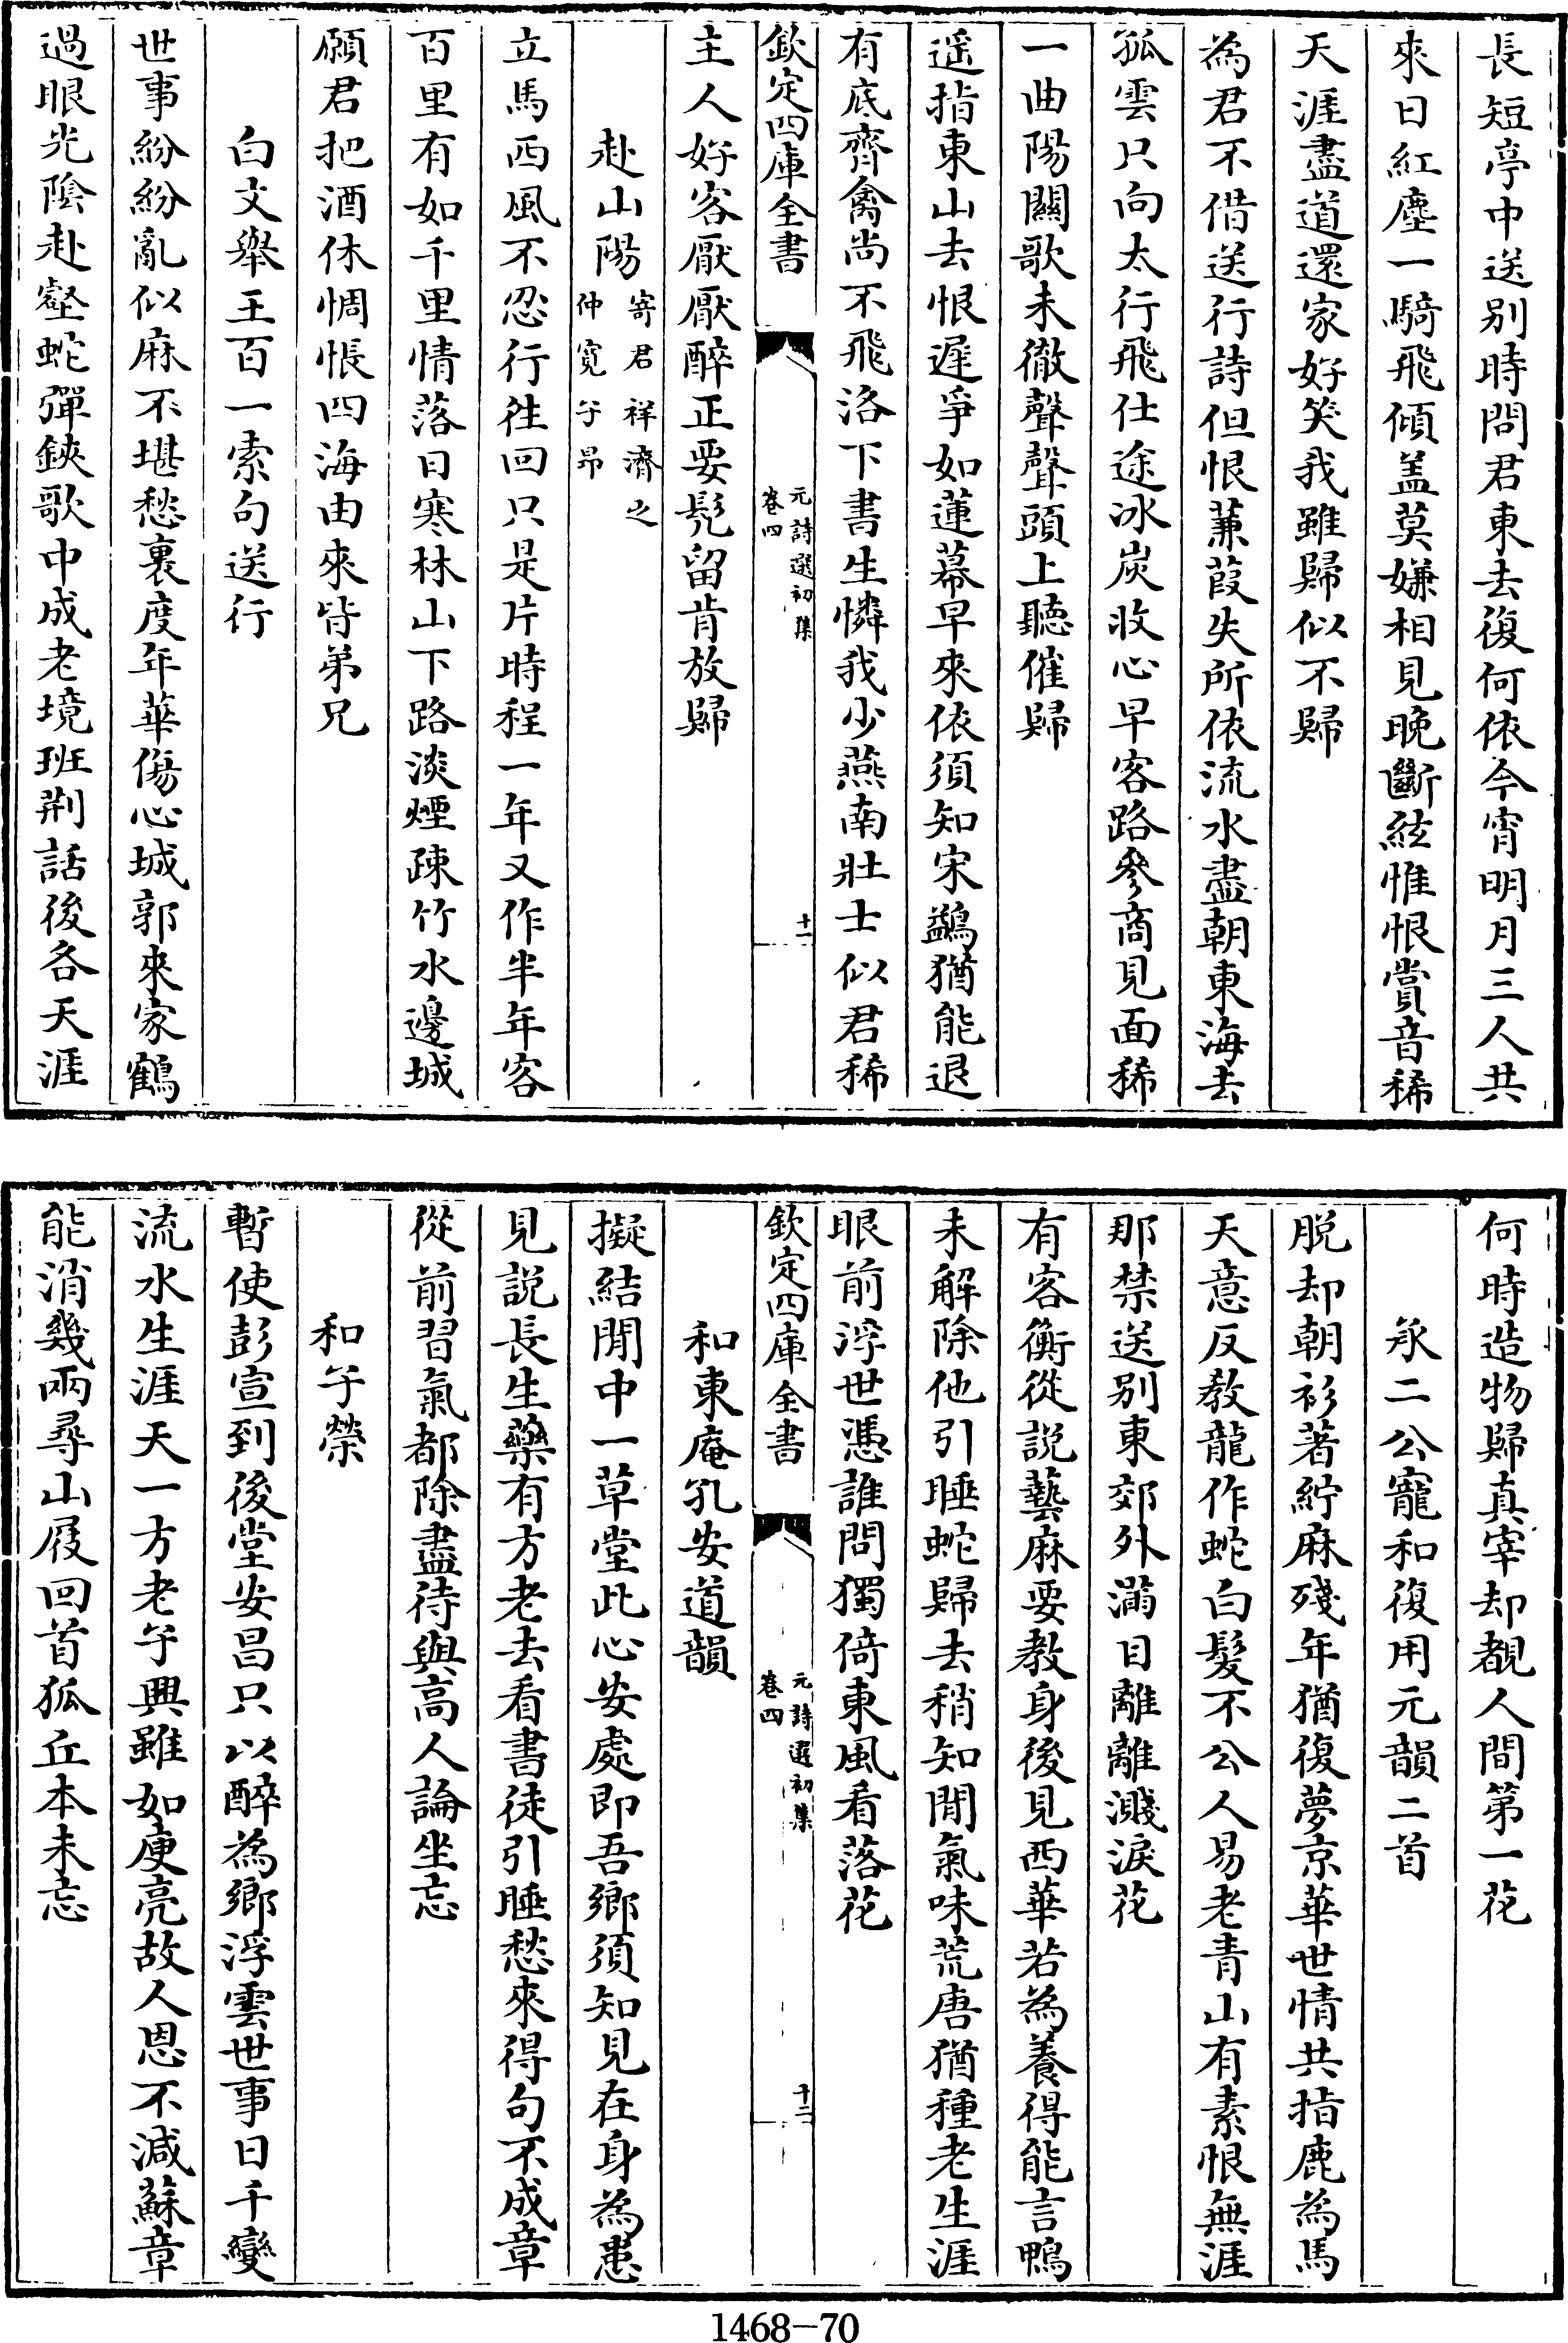 長短亭中送别時問君東去復何依今宵明月三人共
來日紅塵一騎飛傾盖莫嫌相見晚斷絃惟恨賞音稀
天涯盡道還家好笑我雖歸似不歸
為君不惜送行詩但恨蒹葭失所依流水盡朝東海去
孤雲只向太行飛仕途冰炭收心早客路參商見面稀
一曲陽關歌未徹聲聲頭上聽催歸
遥指東山去恨遲爭如蓮幕早來依須知宋鷁猶能退
有底齊禽尚不飛洛下書生憐我少燕南壯士似君稀
欽定四庫全書
元詩選初集
卷四
十一
主人好客厭厭醉正要髡留肯放歸
赴山陽
寄君祥濟之
仲寛子昂
立馬西風不忍行徃回只是片時程一年又作半年客
百里有如千里情落日寒林山下路淡煙疎竹水邊城
願君把酒休惆悵四海由來皆弟兄
白文舉王百一索句送行
世事紛紛亂似麻不堪愁裏度年華傷心城郭來家鶴
過眼光陰赴壑蛇彈鋏歌中成老境班荆話後各天涯
何時造物歸真宰却覩人間第一花
承二公寵和復用元韻二首
脱却朝衫著紵麻殘年猶復夢京華世情共指鹿為馬
天意反教龍作蛇白髮不公人易老青山有素恨無涯
那禁送别東郊外滿目離離濺淚花
有客衡從説藝麻要教身後見西華若為養得能言鴨
未解除他引睡蛇歸去稍知閒氣味荒唐猶種老生涯
眼前浮世憑誰問獨倚東風看落花
欽定四庫全書
元詩選初集
卷四
十二
和東庵孔安道韻
擬結閒中一草堂此心安處即吾鄉須知見在身為患
見説長生藥有方老去看書徒引睡愁來得句不成章
從前習氣都除盡待與高人論坐忘
和子榮
暫使彭宣到後堂安昌只以醉為鄉浮雲世事日千變
流水生涯天一方老子興雖如庾亮故人恩不減蘇章
能消幾兩尋山屐回首狐丘本未忘
1468-70